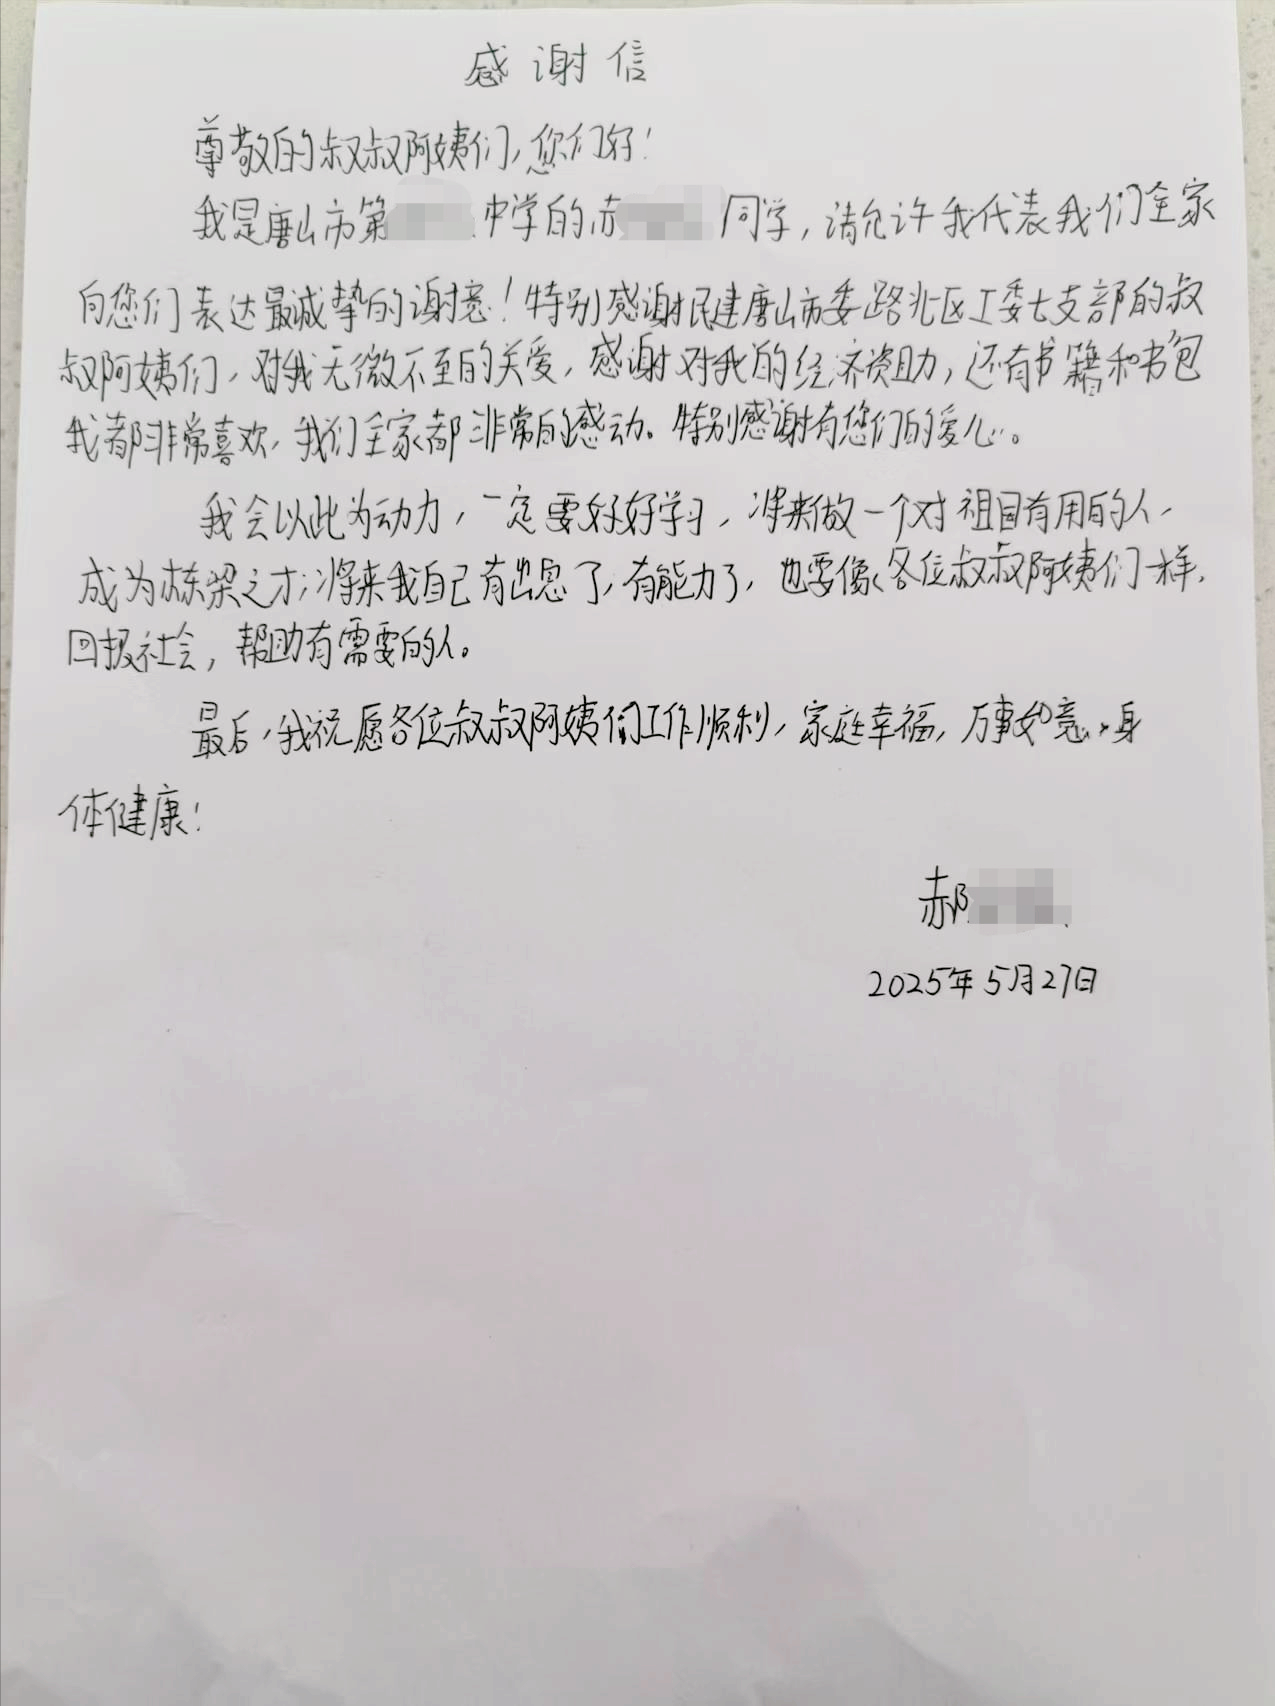 感谢信
尊敬的叔叔阿姨们,您们好!
我是唐山市第 中学的 同学,请允许我代表我们全家
向您们表达最诚挚的谢意!特别感谢民建唐山市委路北区工委七支部的叔
叔阿姨们,对我无微不至的关爱,感谢对我的经济资助,还有书籍和书包
我都非常喜欢,我们全家都非常的感动。特别感谢有您们的爱心。
我会以此为动力,一定要好好学习,将来做一个对祖国有用的人,
成为栋梁之才;将来我自己有出息了,有能力了,也要像各位叔叔阿姨们一样,
回报社会,帮助有需要的人。
最后,我祝愿各位叔叔阿姨们工作顺利,家庭幸福,万事如意,身
体健康!
郝
2025年5月27日